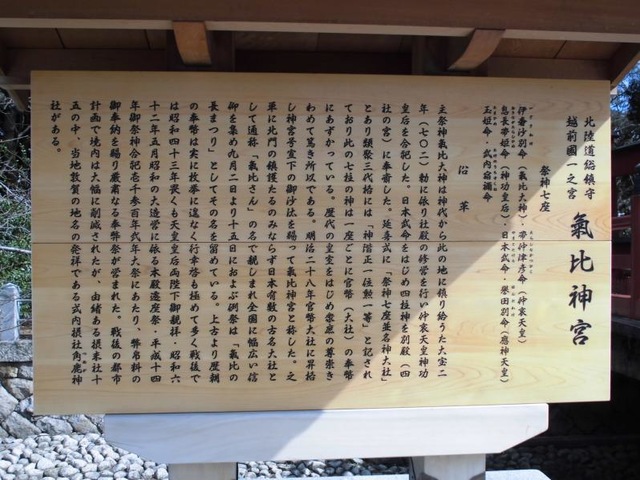 北陸道総鎮守
越前國一之宮
氣比神宮
祭神七座
伊奢沙別命（氣比大神）帯仲津彦命（仲哀天皇）
息長帯姫命（神功皇后）日本武命・誉田別命（應神天皇）
玉姫命・武内宿禰命
沿革
主祭神氣比大神は神代から此の地に鎮り給うた大宝二
年（七〇二）勅に依り社殿の修営を行い仲哀天皇神功
皇后を合祀した。日本武命をはじめ四柱神を別殿（四
社の宮）に奉斎した。延喜式に「祭神七座並名神大社」
とあり類聚三代格には「神階正一位勲一等」と記され
ており此の七柱の神は一座ごとに官幣（大社）の奉幣
にあずかっている。歴代の皇室をはじめ衆庶の尊崇き
わめて篤き所以である。明治二十八年官幣大社に昇格
し神宮号宣下の御沙汰を賜って氣比神宮と称した。之
単に北門の鎮護たるのみならず日本有数の古名大社と
して通称「氣比さん」の名で親しまれ全国に幅広い信
仰を集め九月二日より十五日におよぶ例祭は「氣比の
長まつり」としてその名を留めている。上古より歴朝
の奉幣は実に枚挙に遑なく行幸啓も極めて多く戦後で
は昭和四十三年畏くも天皇皇后両陛下御親拝・昭和六
十二年五月昭和の大造営に依る本殿遷座祭・平成十四
年御祭神合祀壱千参百年式年大祭にあたり、幣帛料の
御奉納を賜り厳粛なる奉幣祭が営まれた。戦後の都市
計画で境内は大幅に削減されたが、由緒ある摂末社十
五の中、当地敦賀の地名の発祥である式内摂社角鹿神
社がある。